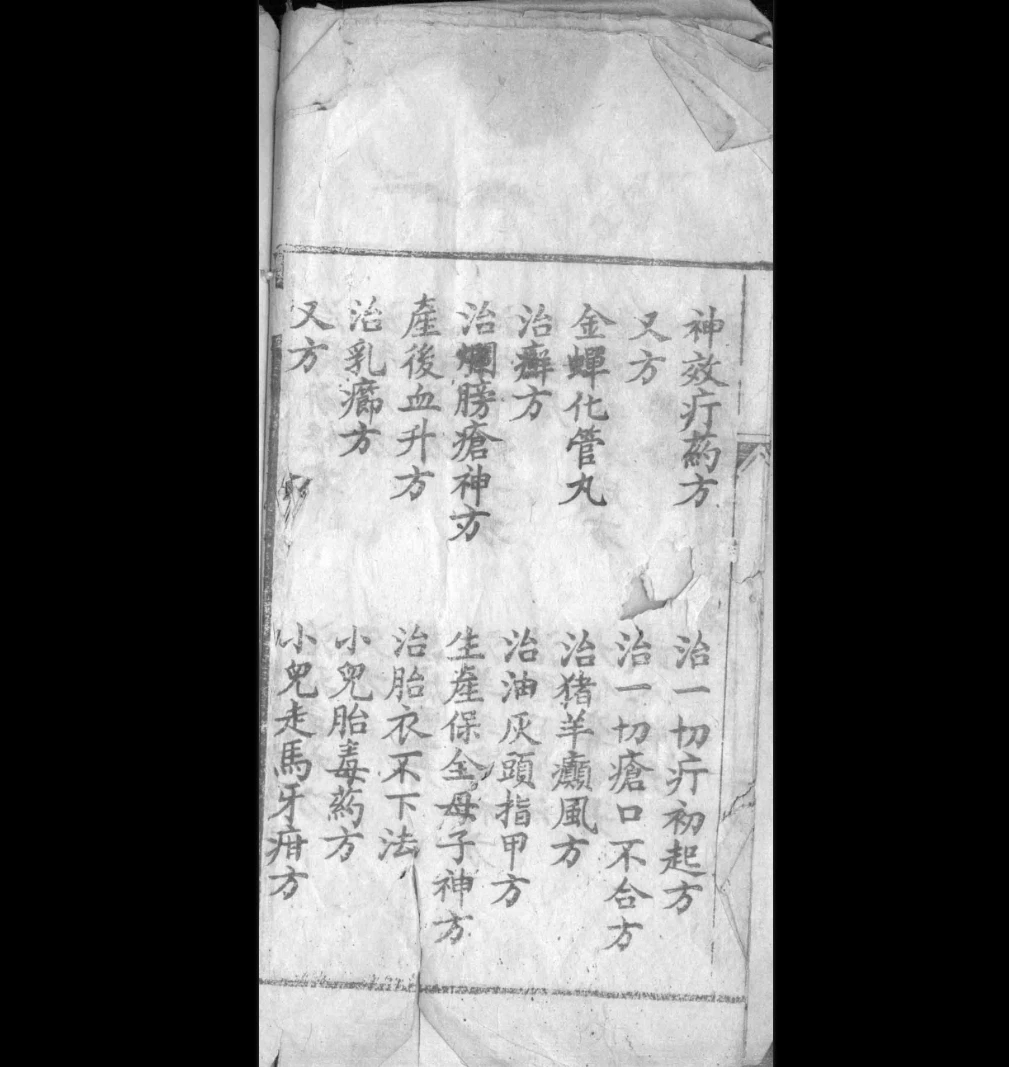 神效疔葯方
治一切疔初起方
又方
治一切瘡口不合方
金蟬化管丸
治猪羊癲風方
治癬方
治油灰頭指甲方
治爛膀瘡神方
生產保全母子神方
產後血升方
治胎衣不下法
治乳癤方
小兒胎毒葯方
又方
小兒走馬牙疳方